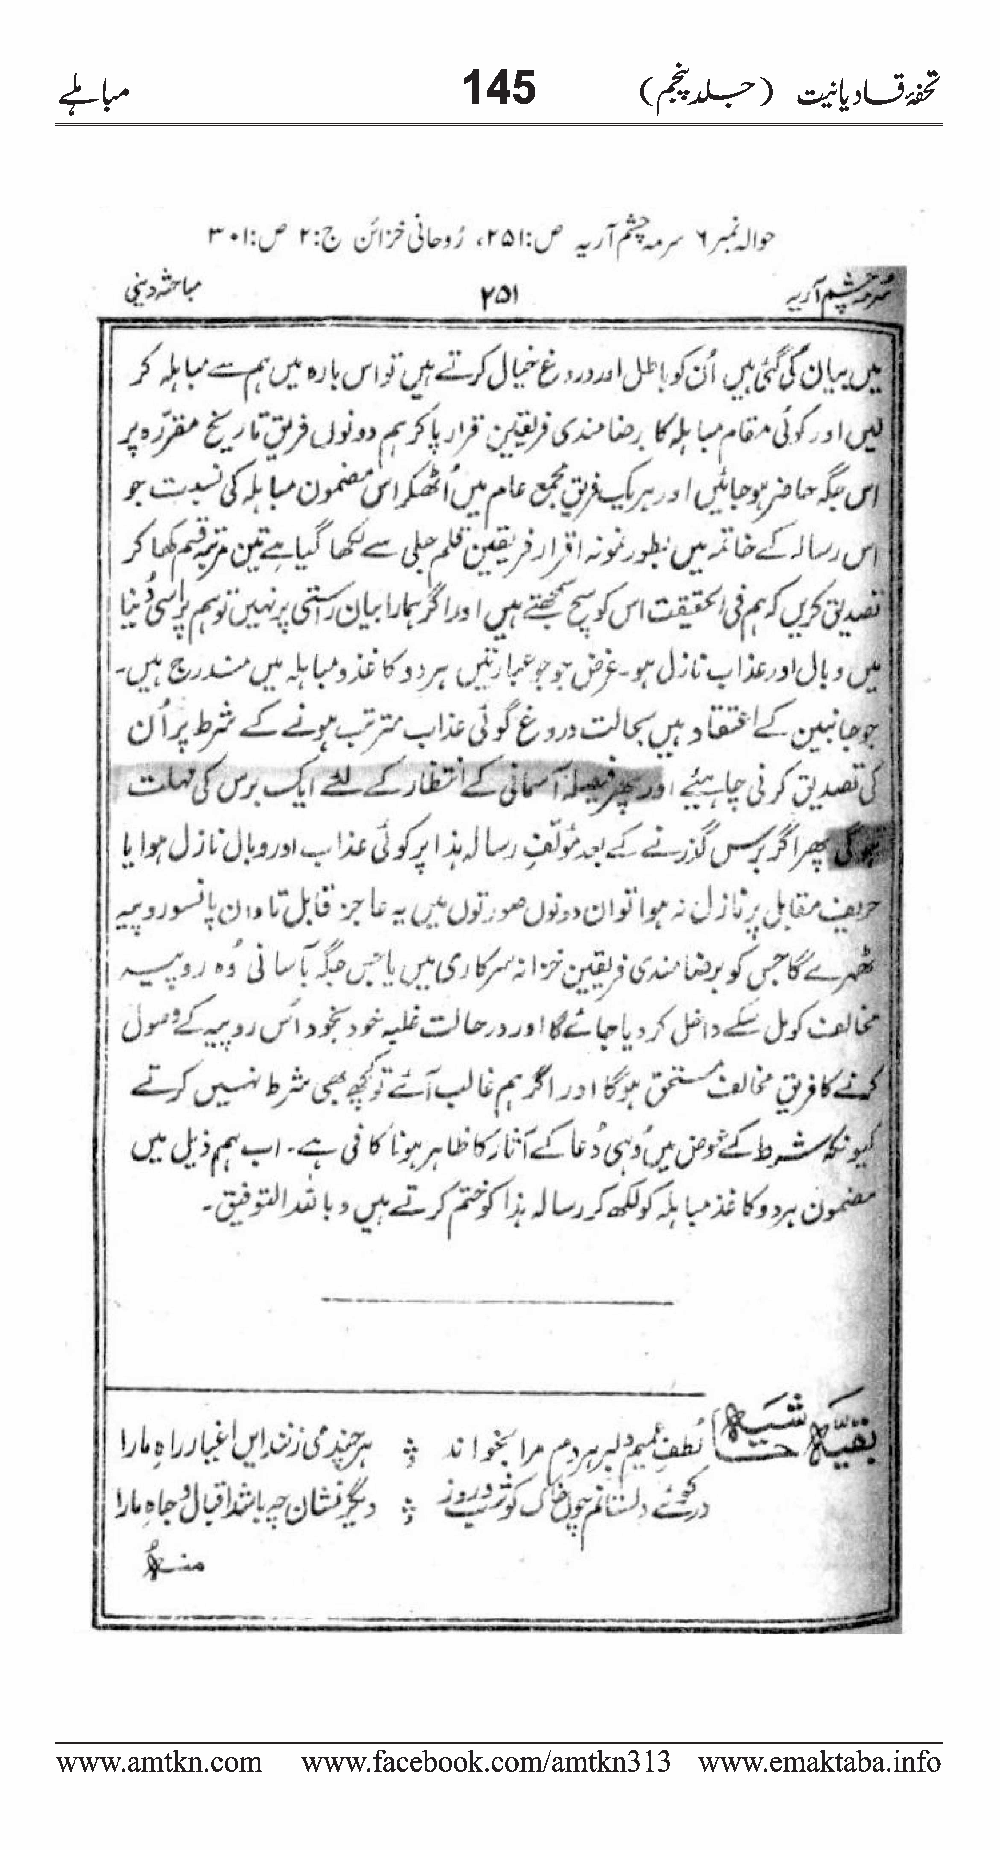 تحفۂ قادیانیت (جلد پنجم) 145 مباہلے
حوالہ نمبر ۶ سرمہ چشم آریہ ص:۲۵۱، رُوحانی خزائن ج:۲ ص:۳۰۱
سُرمہ چشم آریہ ۲۵۱ مباحثہ دینی
میں بیان کی گئی ہیں اُن کو باطل اور دروغ خیال کرتے ہیں تو اس بارہ میں ہم سے مباہلہ کر
لیں اور کوئی مقام مباہلہ کا برضامندی فریقین قرار پا کر ہم دونوں فریق تاریخ مقررہ پر
اس جگہ حاضر ہو جائیں اور ہر یک فریق مجمع عام میں اُٹھکر اس مضمون مباہلہ کی نسبت جو
اس رسالہ کے خاتمہ میں بطور نمونہ اقرار فریقین قلم جلی سے لکھا گیا ہے تین مرتبہ قسم کھا کر
تصدیق کریں کہ ہم فی الحقیقت اس کو سچ سمجھتے ہیں اور اگر ہمارا بیان راستی پر نہیں تو ہم پر اسی دُنیا
میں وبال اور عذاب نازل ہو۔ غرض جو جو عبارتیں ہر دو کاغذ مباہلہ میں مندرج ہیں۔
جو جانبین کے اعتقاد ہیں بحالت دروغ گوئی عذاب مترتب ہونے کے شرط پر اُن
کی تصدیق کرنی چاہیئے اور پھر فیصلہ آسمانی کے انتظار کے لئے ایک برس کی مہلت
ہوگی پھر اگر برس گذرنے کے بعد مؤلف رسالہ ہذا پر کوئی عذاب اور وبال نازل ہوا یا
حریف مقابل پر نازل نہ ہوا تو ان دونوں صورتوں میں یہ عاجز قابل تاوان پانسو روپیہ
ٹھہرے گا جس کو برضامندی فریقین خزانہ سرکاری میں یا جس جگہ بآسانی وُہ روپیہ
مخالف کو مل سکے داخل کر دیا جائے گا اور در حالت غلبہ خود بخود اُس روپیہ کے وصول
کرنے کا فریق مخالف مستحق ہوگا اور اگر ہم غالب آئے تو کچھ بھی شرط نہیں کرتے
کیونکہ شرط کے عوض میں وُہی دُعا کے آثار کا ظاہر ہونا کافی ہے۔ اب ہم ذیل میں
مضمون ہر دو کاغذ مباہلہ کو لکھ کر رسالہ ہذا کو ختم کرتے ہیں و باللہ التوفیق۔
بقیہ حاشیہ لُطف عمیم دلبر ہر دم مرا بخواند ؞ ہر چند می زنند ایں اغیار راہِ ما را
در کوئے دلستانم چوں خاک کو شب و روز ؞ دیگر نشان چہ باشد اقبال و جاہِ ما را
منہ
www.amtkn.com www.facebook.com/amtkn313 www.emaktaba.info